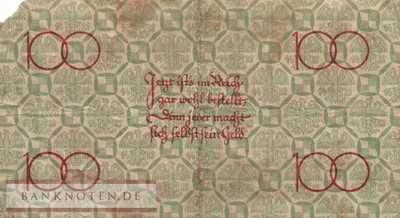 100 100
Jetzt ists im Reich
gar wohl bestellt,
Denn jeder macht
sich selbst sein Geld
100 100
BANKNOTEN.DE